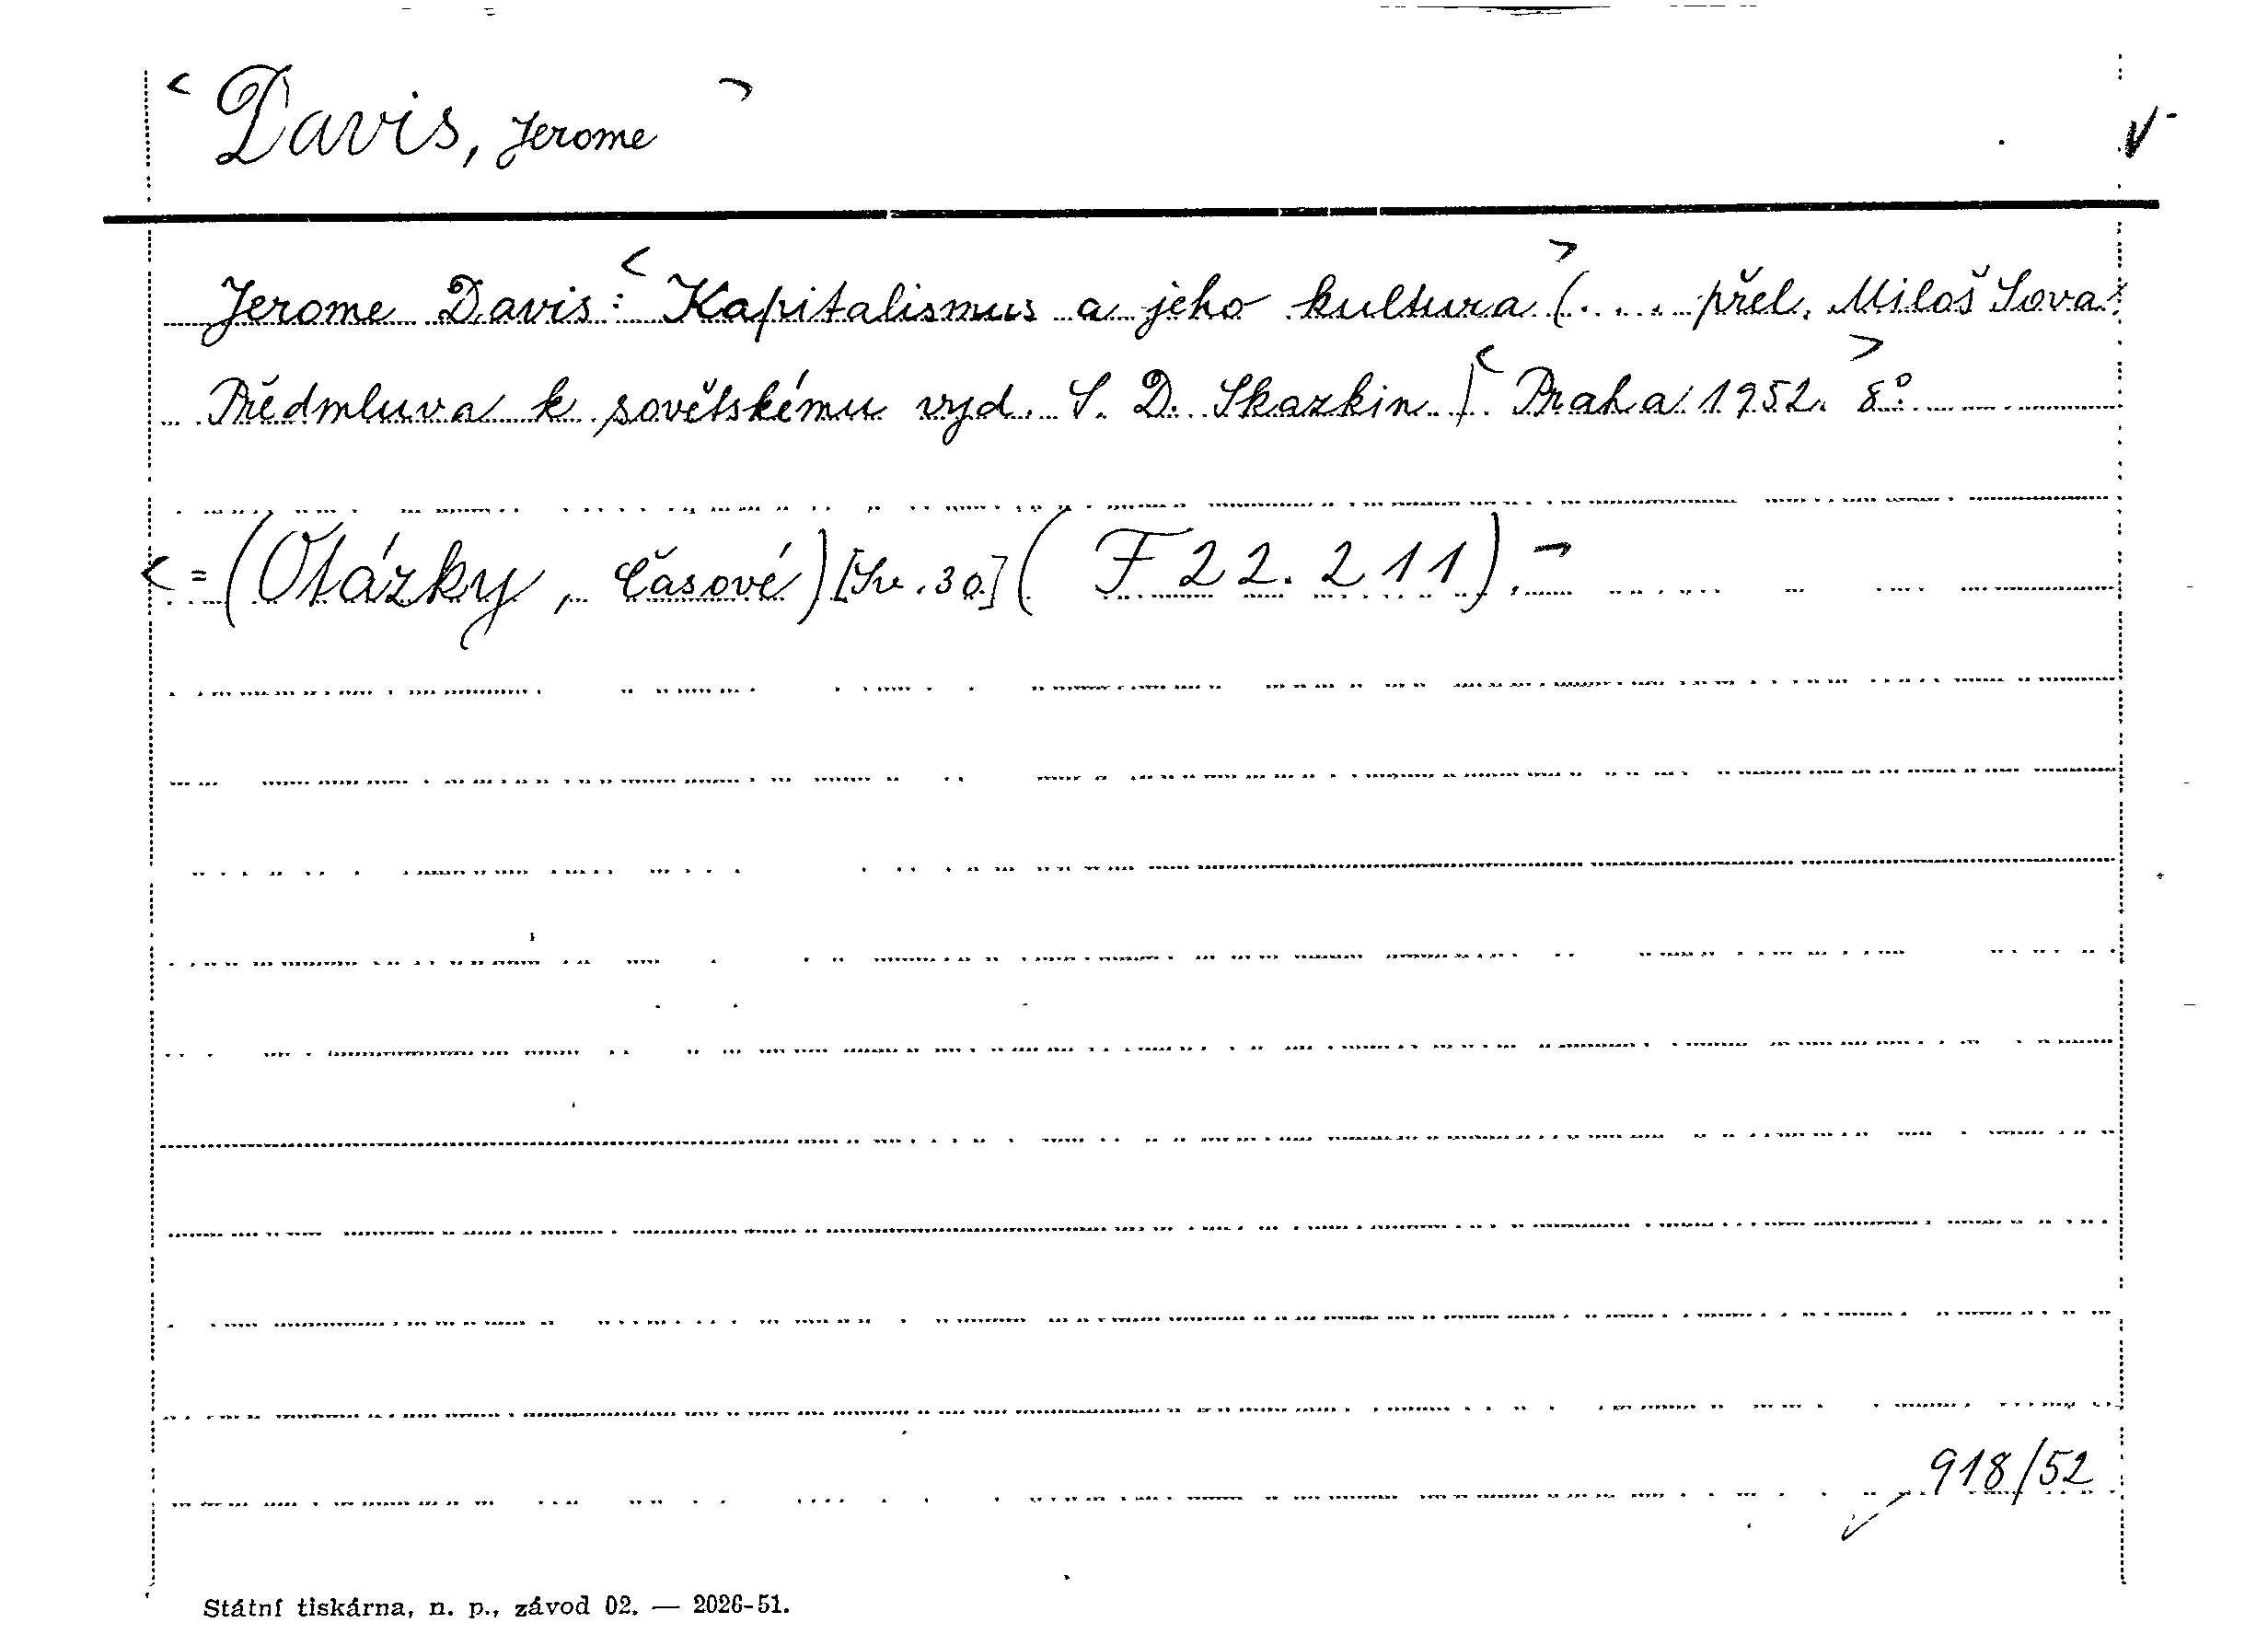 < Davis, Jerome >
Jerome Davis: < Kapitalismus a jeho kultura > (.... přel. Miloš Sova.
Předmluva k sovětskému vyd. S. D. Skazkin.) < Praha 1952. 8°. >
< = (Otázky, časové) [Sv. 30.] ( F 22.211). >
918/52
Státní tiskárna, n. p., závod 02. — 2026-51.